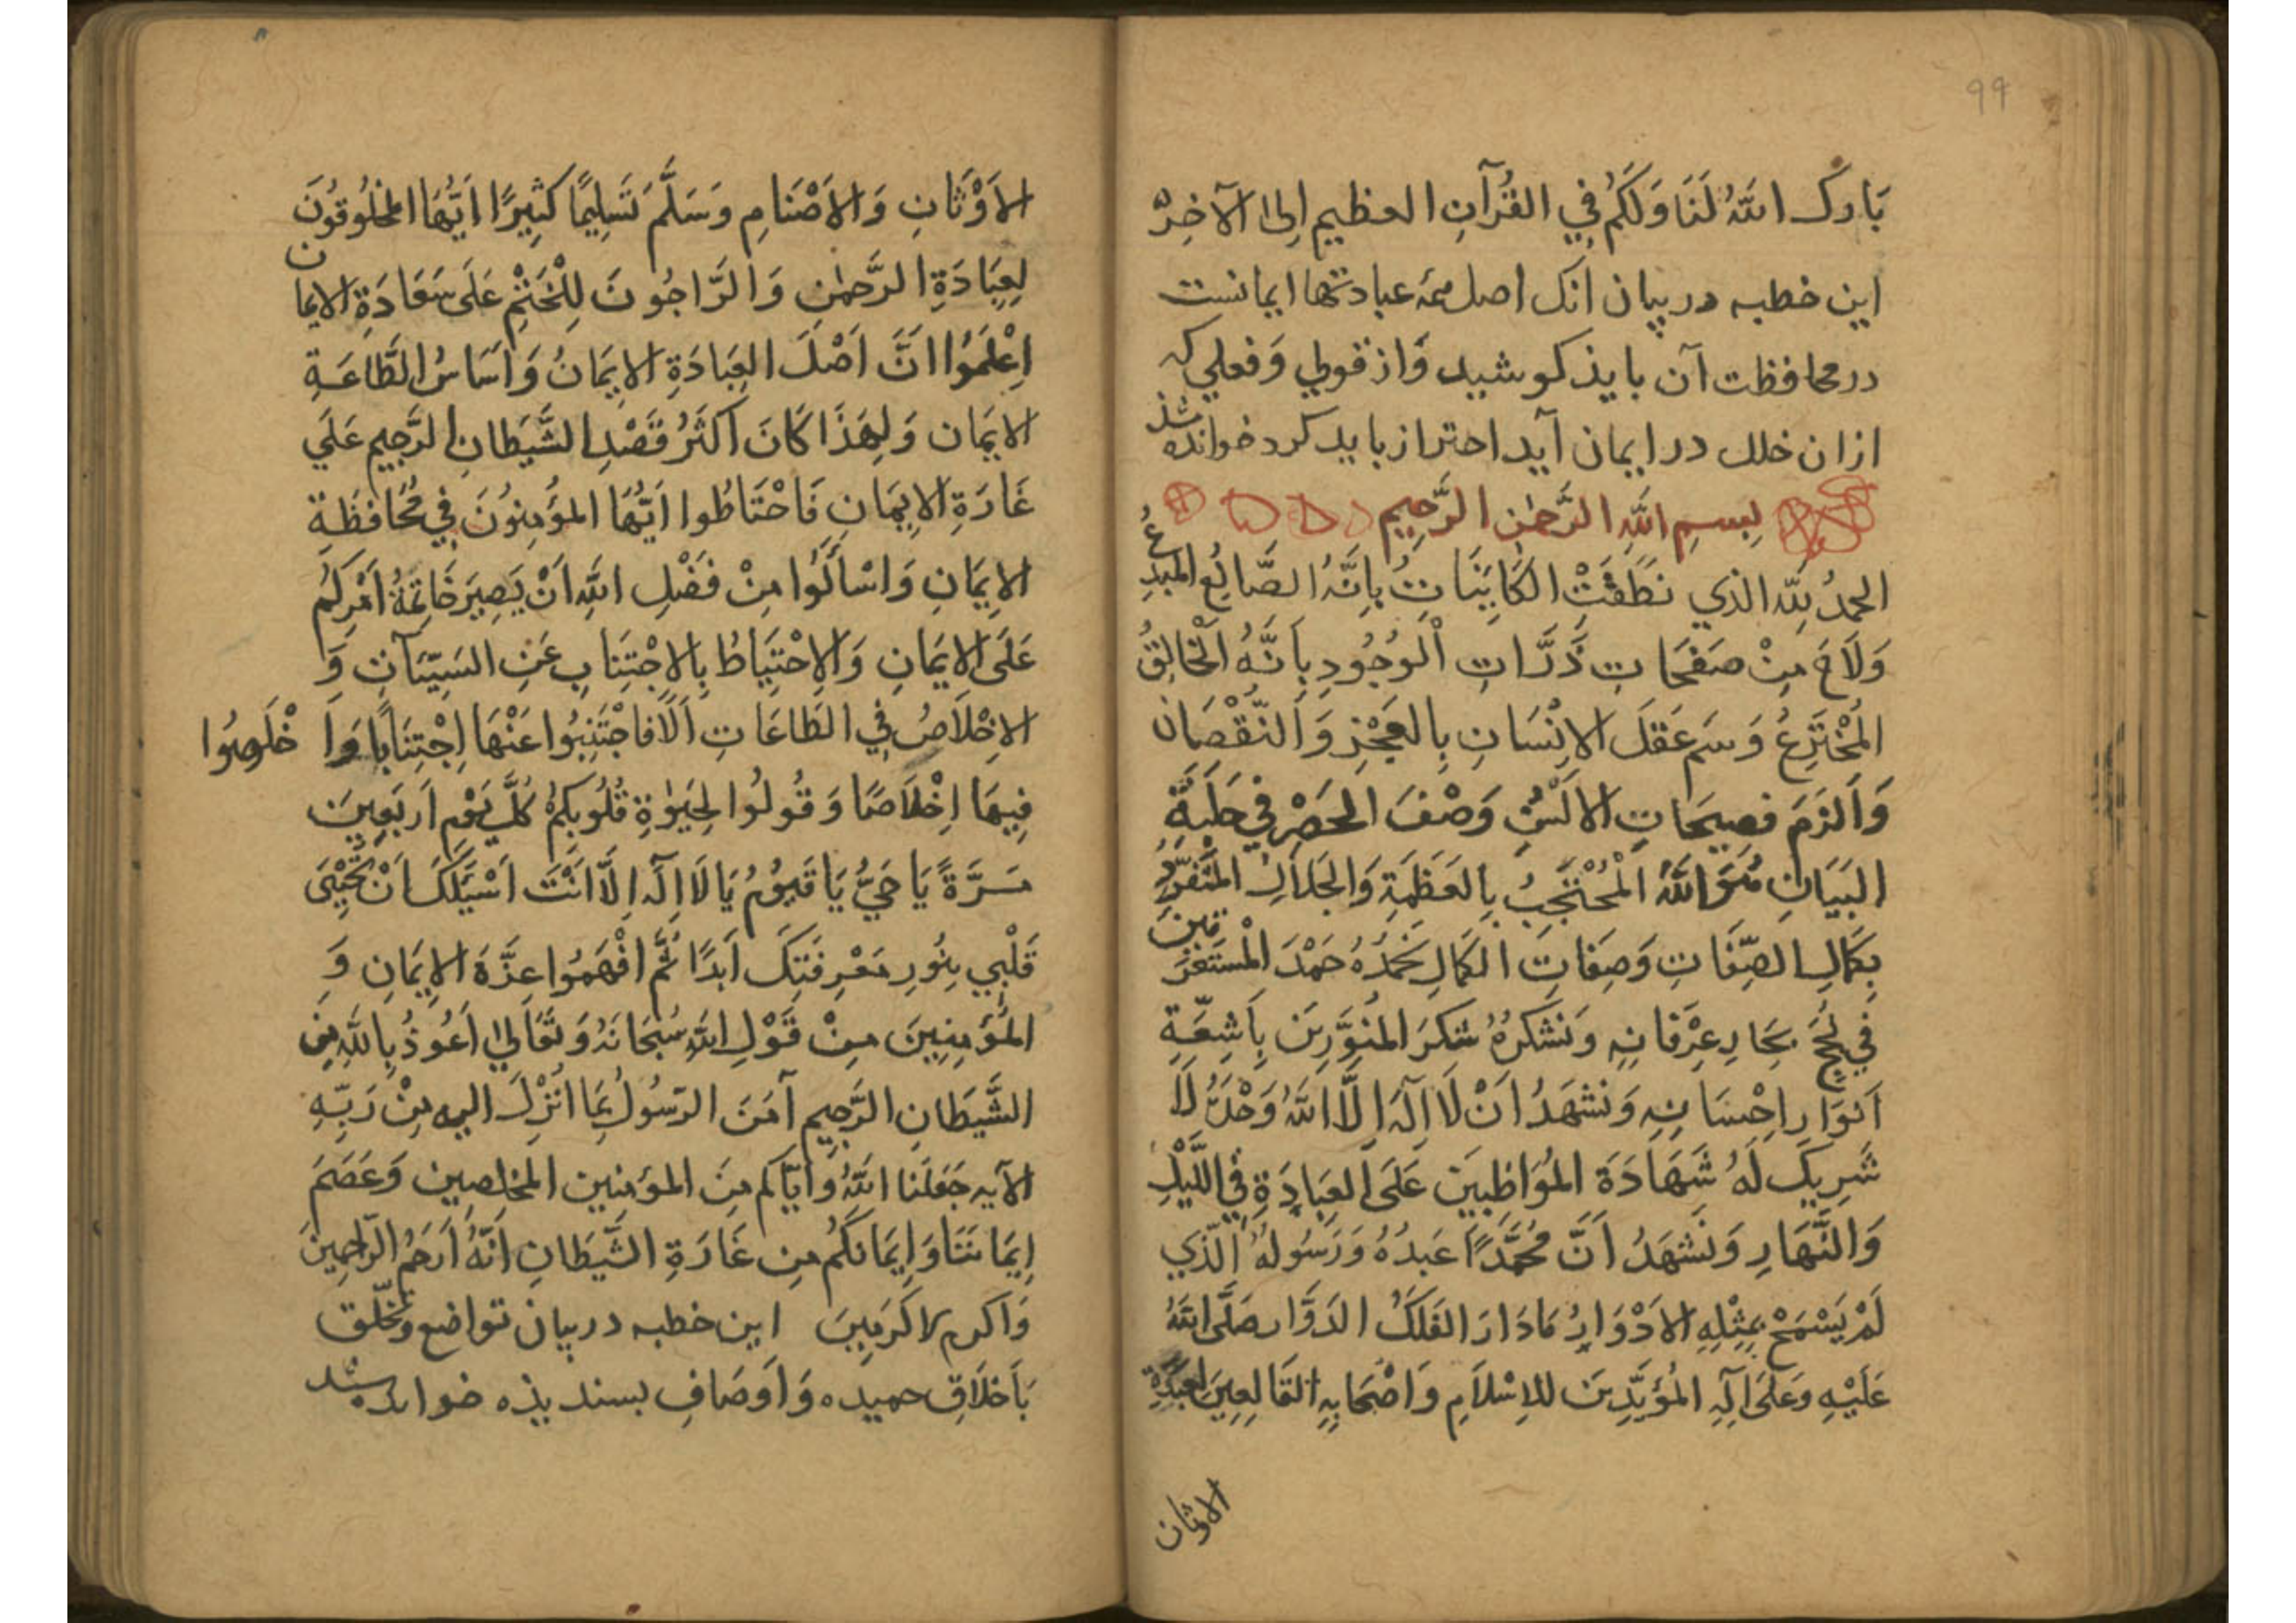 ٩٩
بَارَكَ اللهُ لَنَا وَلَكُمْ فِي القُرْآنِ العظيم اِلَى الآخِرِه
اين خطبه در بيان آنک اصل همهٔ عبادتها ايمانست
در محافظت آن بايد کوشيد وَاز قولي وَفعلي که
ازان خلل در ايمان آيد احتراز بايد کرد خوانده شد
بِسمِ اللهِ الرَّحمٰنِ الرَّحِيمِ
الحمدُ لِلّه الذي نَطَقَتْ الكَايِنَاتُ بِاَنَّهُ الصَّانِعُ المُبْدِعُ
وَلَاحَ مِنْ صَفَحَاتِ ذَرَّاتِ الْوُجُودِ بِاَنَّهُ الْخَالِقُ
المُخْتَرِعُ وَسَمَ عَقلَ الاِنْسَانِ بِالعَجْزِ وَالنُّقْصَان
وَاَلزَمَ فصِيحَاتِ الاَلْسُنِ وَصْفَ الحَصْرِ في حَلْبَةِ
البَيَانِ هُوَ اللهُ الْمُحْتَجِبُ بِالعَظَمَةِ وَالجَلاَلِ المُتَفَرِّدُ
بِكَمَالِ الصِّفَاتِ وَصِفَاتِ الكَمَالِ نَحْمَدُهُ حَمْدَ المُسْتَغْرَقينَ
فِي لُجَجِ بِحَارِ عِرْفَانِهِ وَنَشْكُرُهُ شُكرَ المُنَوَّرِينَ بِاَشِعَّةِ
اَنوَارِ اِحْسَانِهِ وَنَشْهَدُ اَنْ لَا اِلَهَ اِلَّا اللهُ وَحْدَهُ لَا
شَرِيكَ لَهُ شَهَادَةَ المُوَاظِبِينَ عَلَى العِبَادَةِ فِي اللَّيْلِ
وَالنَّهَارِ وَنَشْهَدُ اَنَّ مُحَمَّدًا عَبدُهُ وَرَسُولُهُ الَّذي
لَمْ يَسْمَحْ بِمِثْلِهِ الاَدْوَارُ مَا دَارَ الفَلَكُ الدَوَّار صَلَّى اللهُ
عَلَيْهِ وَعَلَى آلِهِ المُؤَيِّدِينَ للاِسْلَامِ وَاَصْحَابِهِ القَالِعِينَ لِعَبَدَةِ
الاوثان
الاَوْثَانِ وَالاَصْنَامِ وَسَلَّمَ تَسْلِيمًا كَثِيرًا اَيُّهَا المخلُوقُونَ
لِعِبَادَةِ الرَّحمٰنِ وَالرَّاجُونَ لِلْخَتْمِ عَلَى سَعَادَةِ الايمان
اِعْلَمُوا اَنَّ اَصْلَ العِبَادَةِ الاِيمَانُ وَاَسَاسُ الطَّاعَةِ
الايمَان وَلِهَذَا كَانَ اَكثَرُ قَصْدِ الشَّيطَانِ الرَّجِيمِ عَلَي
غَارَةِ الاِيمَانِ فَاحْتَاطُوا اَيُّهَا المُؤمِنُونَ فِي مُحَافَظَةِ
الاِيمَانِ وَاسْاَلُوا مِنْ فَضْلِ اللهِ اَنْ يَصِيرَ خَاتِمَةُ اَمْرِكُمْ
عَلَى الايمَانِ وَالاِحْتِيَاطُ بِالاِجْتِنَابِ عَنِ السَيِّئآتِ وَ
الاِخْلَاصُ فِي الطَاعَاتِ اَلَا فَاجْتَنِبُوا عَنْهَا اِجْتِنَابًا وَا خْلَصُوا
فِيهَا اِخْلَاصًا وَقُولُوا لِحَيٰوةِ قُلُوبِكُمْ كُلَّ يَوْمٍ اَربَعِينَ
مَرَّةً يَا حَيُّ يَا قَيُّومُ يَا لَا اِلَه اِلَّا اَنْتَ اَسْئَلُكَ اَنْ تُحْيِيَ
قَلْبِي بِنُورِ مَعْرِفَتِكَ اَبَدًا ثُمَّ افْهَمُوا عِزَّةَ الاِيمَانِ وَ
المُؤمِنِينَ مِنْ قَوْلِ اللهِ سُبحَانَهُ وَتَعَالي اَعُوذُ بِاللهِ مِنَ
الشَّيطَانِ الرَّجِيمِ آمَنَ الرَسُولُ بِمَا اُنْزِلَ اليه مِنْ رَبِّهِ
الآيه جَعَلَنَا اللهُ وَاِيَّاكُم مِنَ المؤمنين المخلصِين وَعَصَمَ
اِيمَانَنَا وَاِيمَانَكُمْ مِن غَارَةِ الشَّيطَانِ اَنَّهُ اَرْحَمُ الرَّاحِمِينَ
وَاَكرم الاكرَمِينَ اين خطبه در بيان تواضع وَتخلّق
بَاَخلَاقِ حميده وَاَوصَافِ بسنديذه خوانده شد